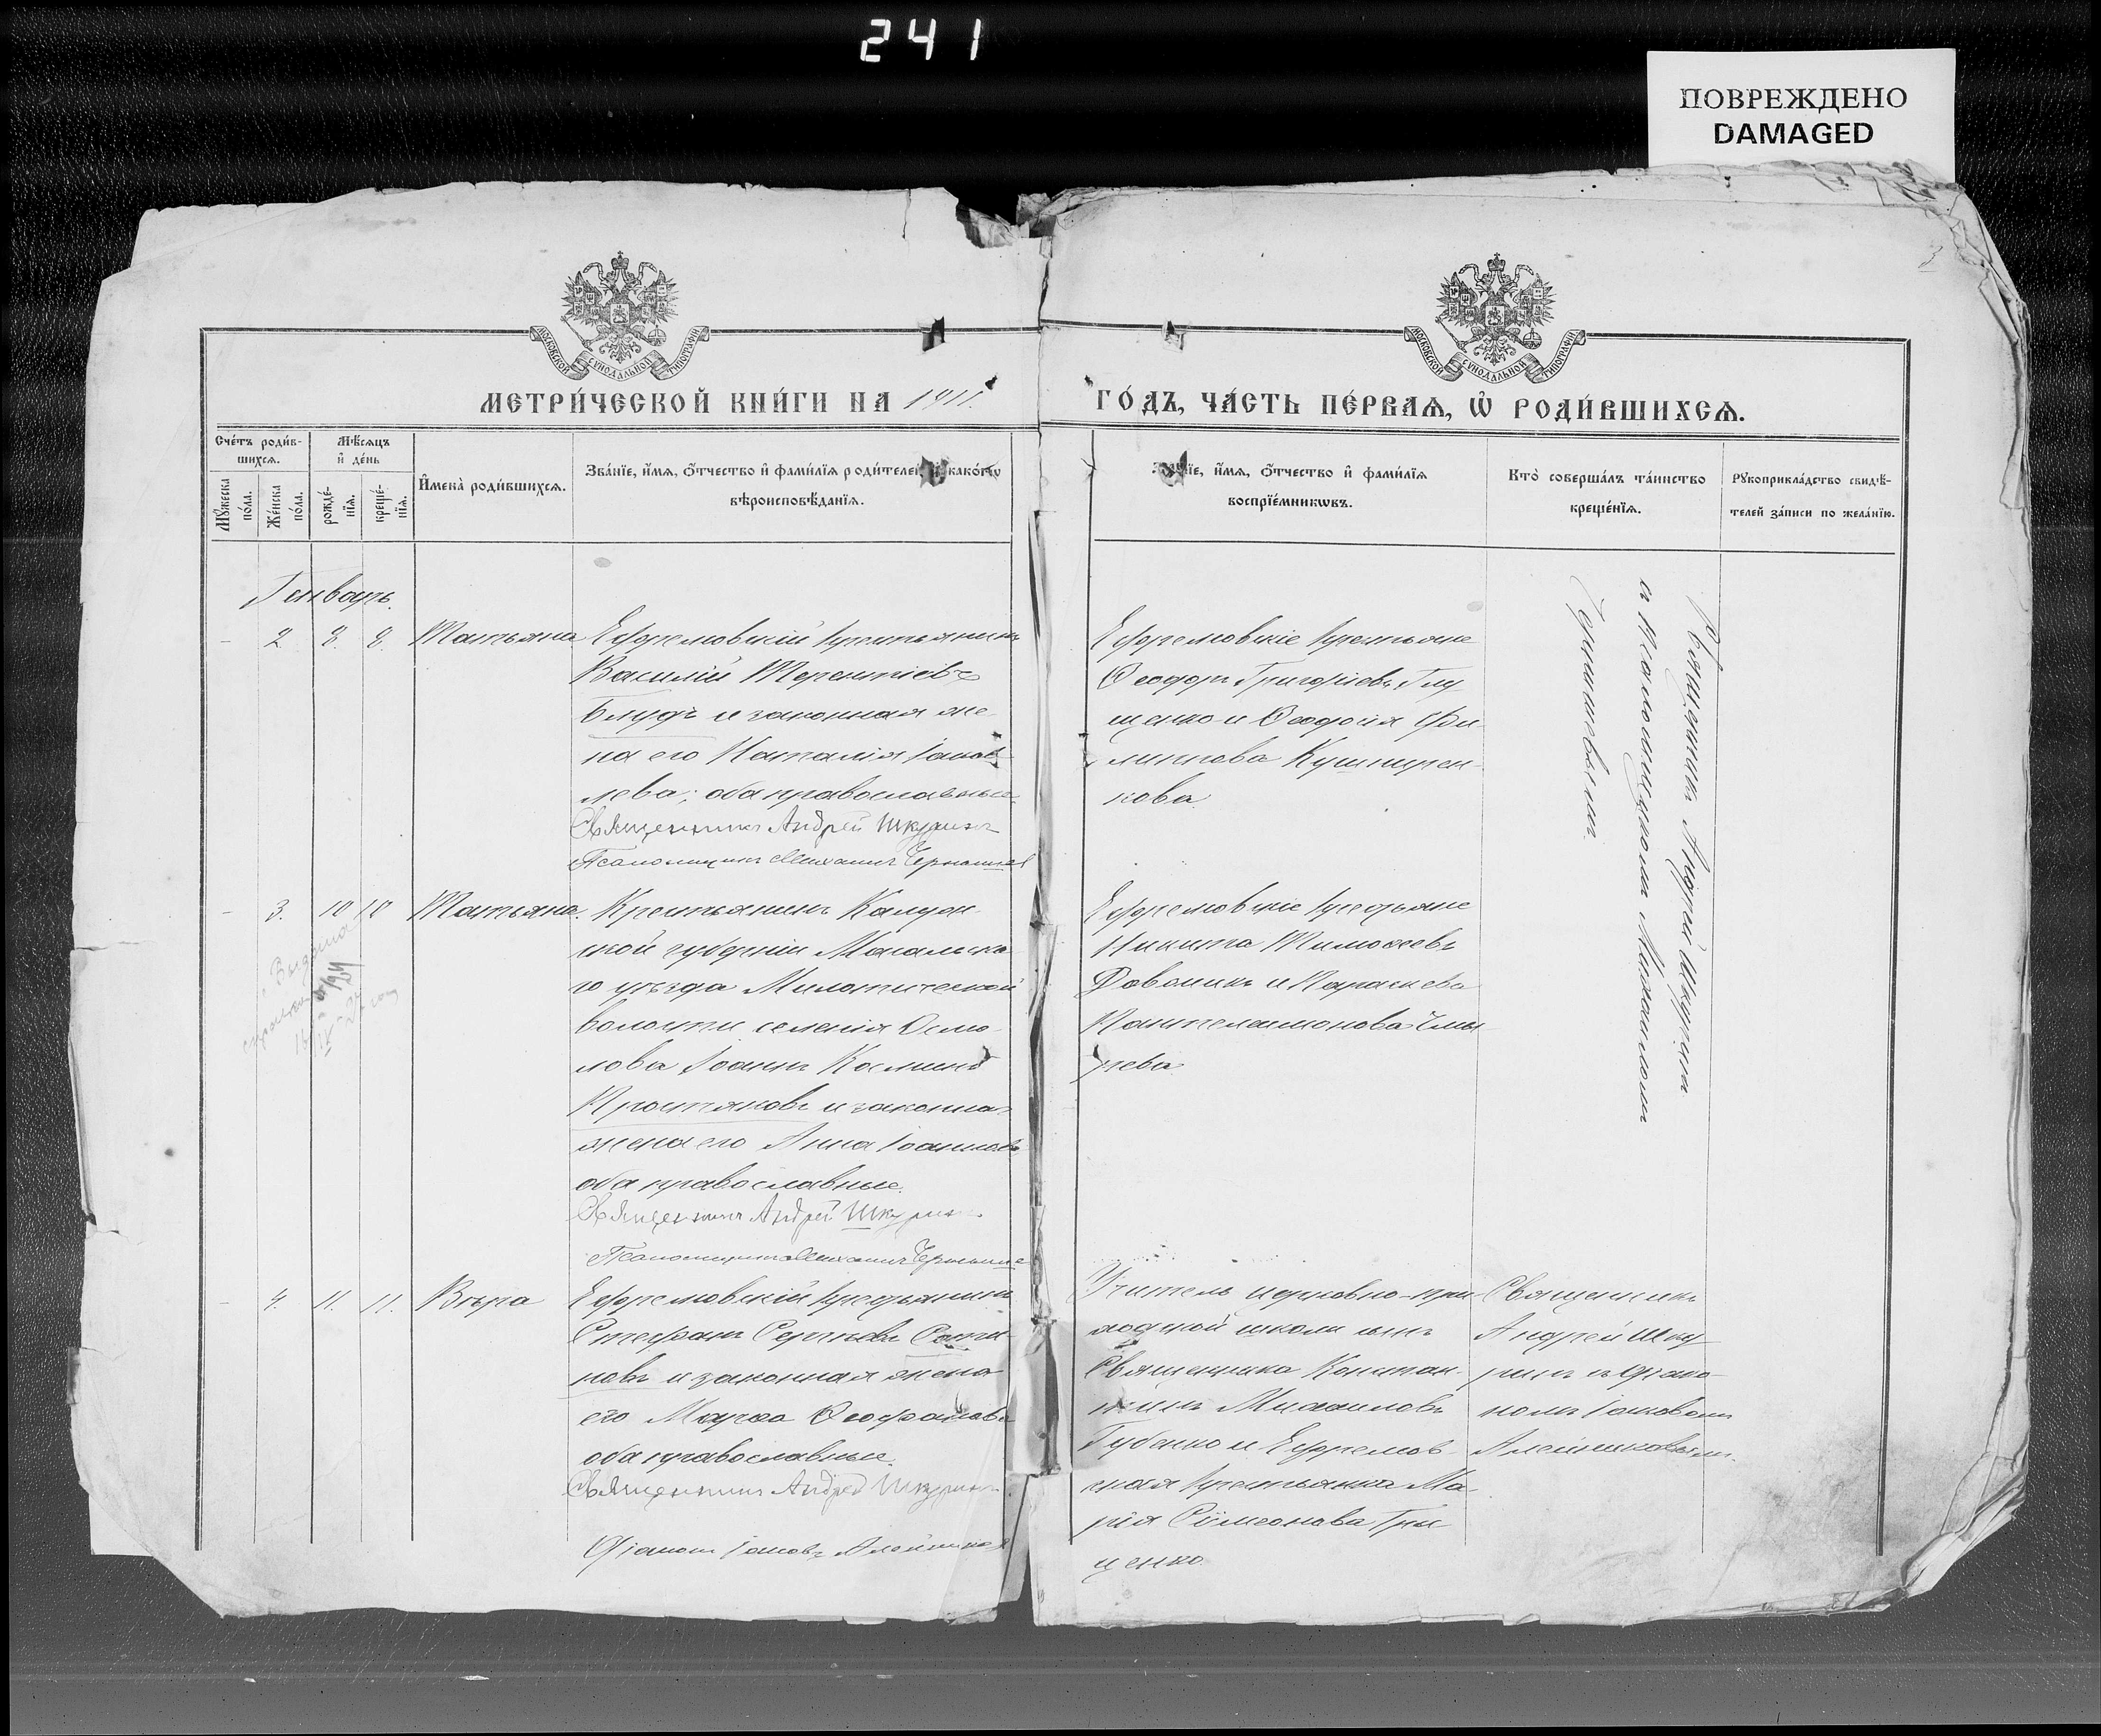 241
ПОВРЕЖДЕНО
DAMAGED
МОСКОВСКОЙ СУНОДАЛЬНОЙ ТИПОГРАФІИ
МОСКОВСКОЙ СУНОДАЛЬНОЙ ТИПОГРАФІИ
МЕТРИ́ЧЕСКОЙ КНИ́ГИ НА 1911.
ГО́ДЪ, ЧА́СТЬ ПЕ́РВАѦ, Ѡ҆ РОДИ́ВШИХСѦ.
Сче́тъ роди́в-
шихсѧ.
Мꙋ́жеска по́ла.
Же́нска по́ла.
Мѣ́сѧцъ
и҆ де́нь
рожде́-
нїѧ.
креще́-
нїѧ.
И҆мена̀ роди́вшихсѧ.
Зва́нїе, и҆́мѧ, ѻ҆́тчество и҆ фами́лїѧ роди́телей, како́гѡ
вѣроисповѣ́данїѧ.
и҆́мѧ, ѻ҆́тчество и҆ фами́лїѧ
воспрїе́мникѡвъ.
Кто̀ соверша́лъ та́инство
креще́нїѧ.
Рꙋкоприкла́дство свидѣ́-
телей за́писи по жела́нїю.
Генварь.
- 2. 8. 8. Татьяна
Ефремовскій крестьянинъ
Василій Терентіевъ
Блудъ и законная же-
на его Наталія Іаков-
лева; оба православные.
Священникъ Андрей Шкуринъ
Псаломщикъ Михаилъ Чернышев
Ефремовскіе крестьяне
Ѳеодоръ Григоріевъ Глу
щенко и Ѳеодосія Фи-
липпова Кушнирен-
кова
Священникъ Андрей Шкуринъ
съ Псаломщикомъ Михаиломъ
Чернышевымъ.
- 3. 10 10 Татьяна.
Крестьянинъ Калуж-
ской губерніи Масальска
го уѣзда
волости селенія Осмо-
лова Іоаннъ Косминъ
и законная
жена его Анна Іоаннова
оба православные.
Священникъ Андрей Шкуринъ
Псаломщикъ Михаилъ Чернышев
Выдана
Ефремовскіе крестьяне
Никита Тимоѳеевъ
и Параскева
Пантелеимонова
- 4. 11. 11. Вѣра
Ефремовскій крестьянинъ
Стефанъ Сергіевъ
новъ и законная жена
его Марѳа Ѳеофанова
оба православные.
Священникъ Андрей Шкуринъ
Діаконъ Іаковъ Алейников
Учитель церковно-при-
ходской школы сынъ
Священника
Михаиловъ
Губенко и Ефремов-
ская крестьянка Ма-
рія Сѵмеонова Гри
ценко
Священникъ
Андрей Шку
ринъ съ діако-
номъ Іаковомъ
Алейниковымъ.